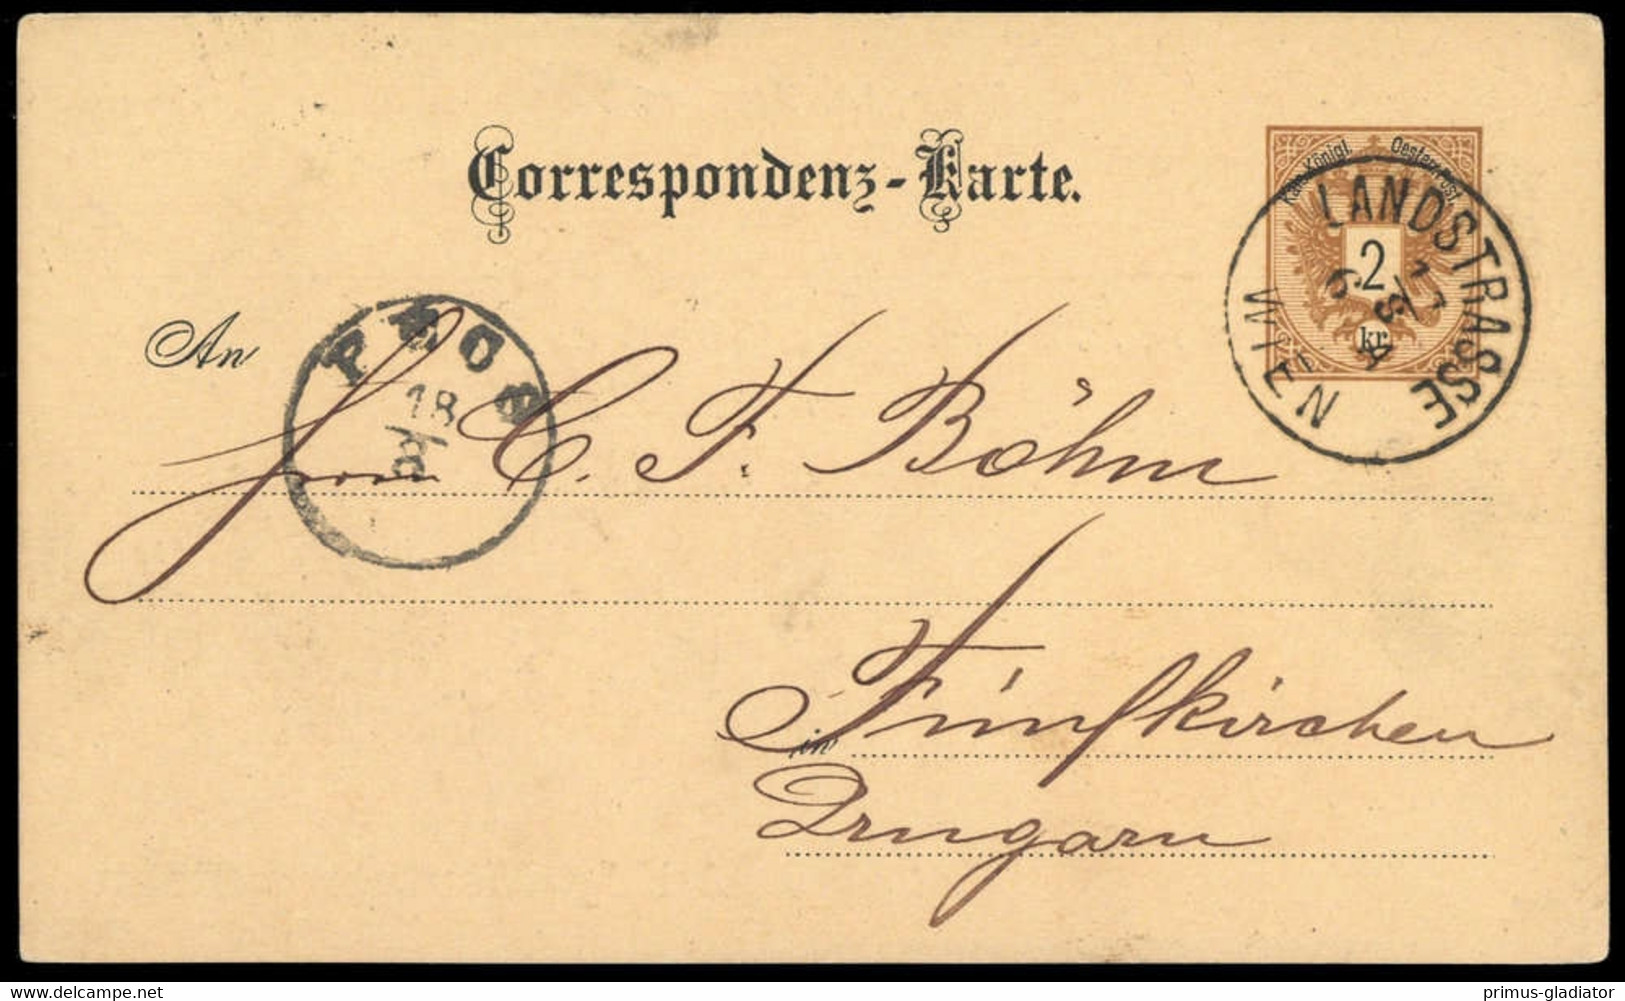 Correspondenz-Karte.
Kais. Königl. Oesterr. Post.
2
kr.
WIEN LANDSTRASSE
An
18
8
Herrn C. F. Böhm
in Fünfkirchen
Ungarn
https://www.delcampe.net
primus-gladiator